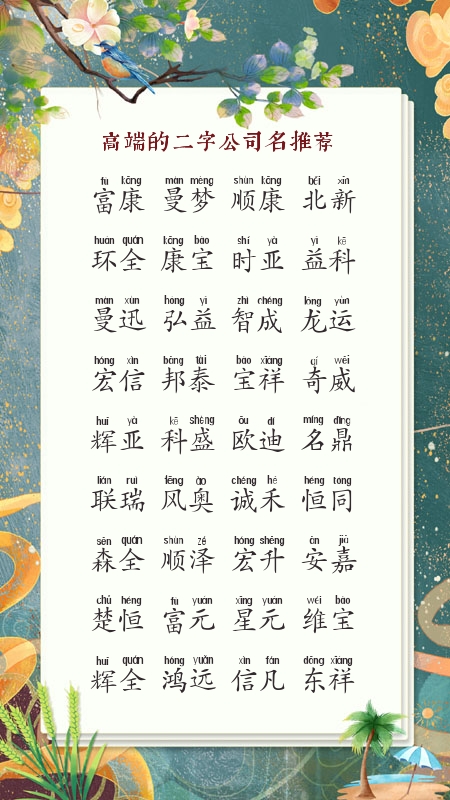 高端的二字公司名推荐
fù kāng màn mèng shùn kāng běi xīn
富康 曼梦 顺康 北新
huán quán kāng bǎo shí yà yì kē
环全 康宝 时亚 益科
màn xùn hóng yì zhì chéng lóng yùn
曼迅 弘益 智成 龙运
hóng xìn bāng tài bǎo xiáng qí wēi
宏信 邦泰 宝祥 奇威
huī yà kē shèng ōu dí míng dǐng
辉亚 科盛 欧迪 名鼎
lián ruì fēng ào chéng hé héng tóng
联瑞 风奥 诚禾 恒同
sēn quán shùn zé hóng shēng ān jiā
森全 顺泽 宏升 安嘉
chǔ héng fù yuán xīng yuán wéi bǎo
楚恒 富元 星元 维宝
huī quán hóng yuǎn xìn fán dōng xiáng
辉全 鸿远 信凡 东祥